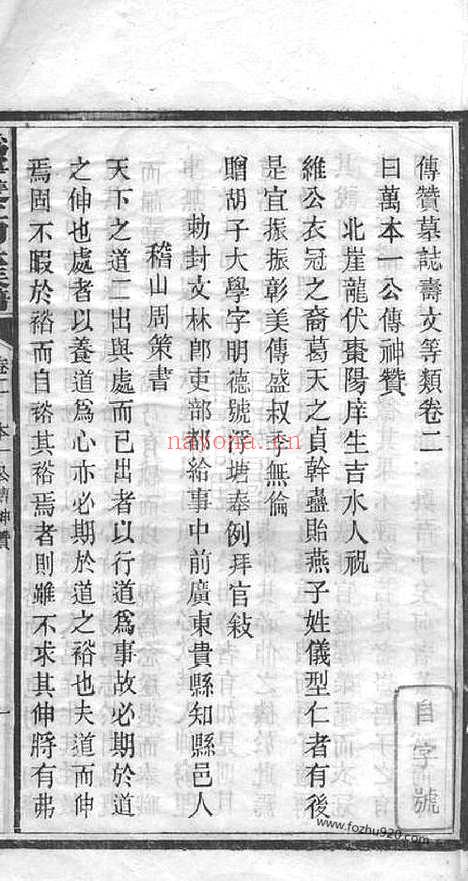 傳贊墓誌壽文等類卷二
曰萬本一公傳神贊
北崖龍伏棗陽庠生吉水人祝
維公衣冠之裔葛天之貞幹蠱貽燕子姓儀型仁者有後
是宜振振彰美傳盛叔季無倫
贈胡子大學字明德號深塘奉例拜官敍
勅封文林郎吏部都給事中前廣東貴縣知縣邑人
稽山周策書
天下之道二出與處而已出者以行道爲事故必期於道
之伸也處者以養道爲心亦必期於道之裕也夫道而伸
焉固不暇於裕而自裕其裕焉者則雖不求其伸將有弗
卷二
本一公傳神贊
一
自字號
nayona.cn
www.fozhu920.com